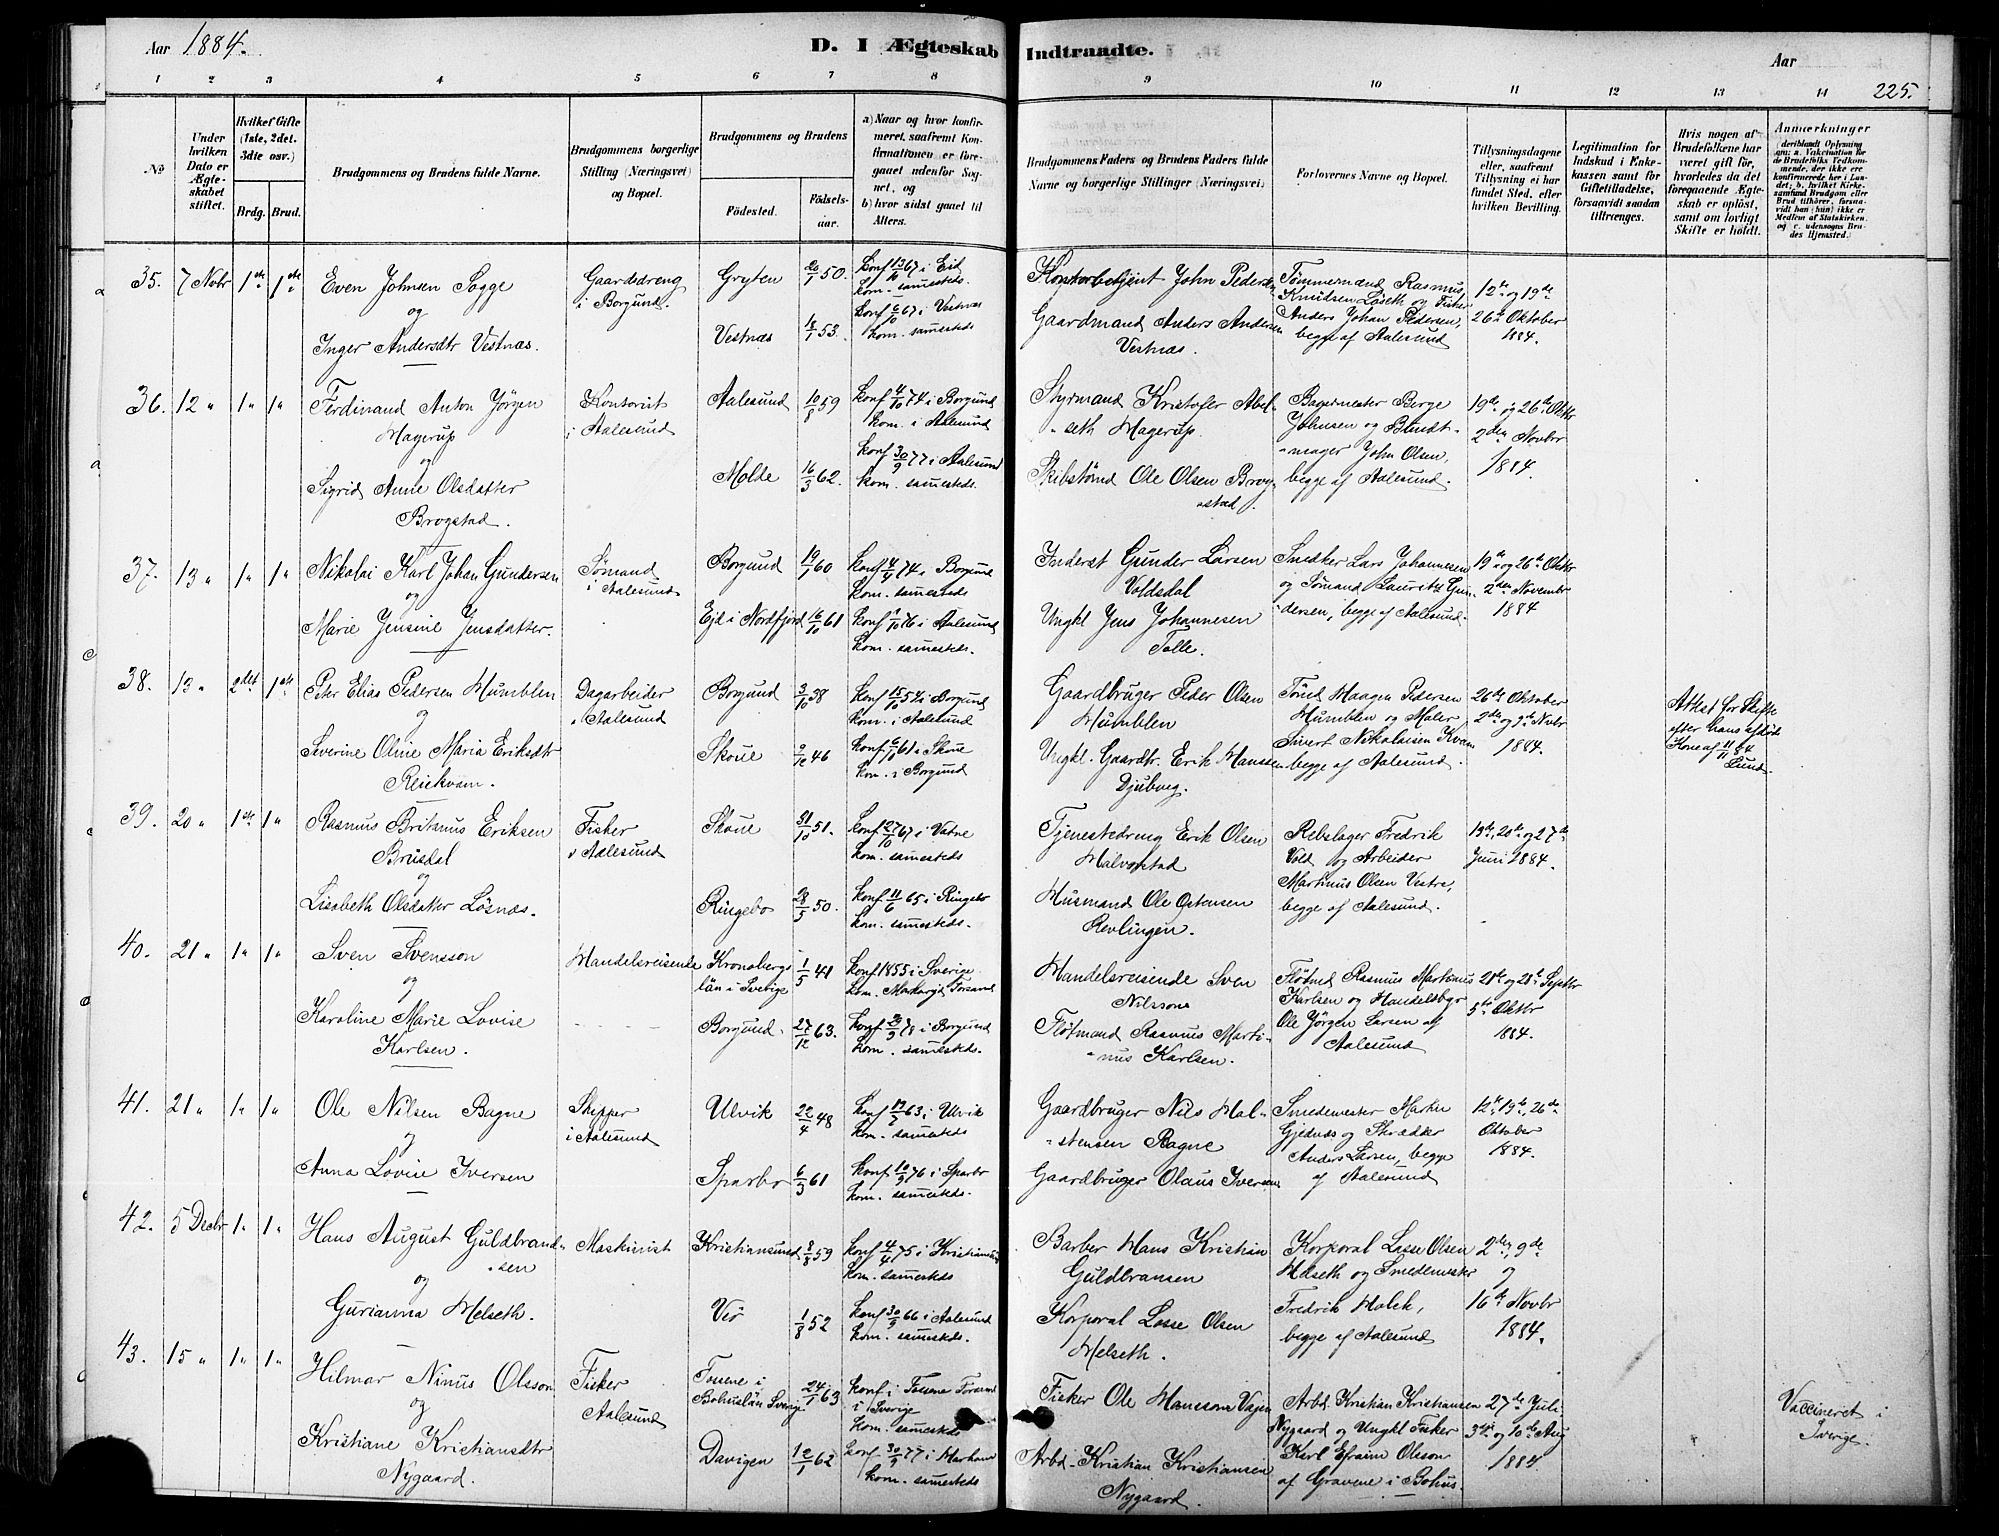 Aar 1884.
D. I Ægteskab Indtraadte.
Aar
225.
1 2 3 4 5 6 7 8 9 10 11 12 13 14
No
Under hvilken Dato er Ægteskabet stiftet.
Hvilket Gifte (1ste, 2det, 3die osv.)
Brdg. Brud.
Brudgommens og Brudens fulde Navne.
Brudgommens borgerlige Stilling (Næringsvei) og Bopæl.
Brudgommens og Brudens
Fødested.
Fødselsaar.
a) Naar og hvor konfirmeret, saafremt Konfirmationen er foregaaet udenfor Sognet, og
b) hvor sidst gaaet til Alters.
Brudgommens Faders og Brudens Faders fulde Navne og borgerlige Stillinger (Næringsvei)
Forlovernes Navne og Bopæl.
Tillysningsdagene eller, saafremt Tillysning ei har fundet Sted, efter hvilken Bevilling.
Legitimation for Indskud i Enkekassen samt for Giftetilladelse, forsaavidt saadan tiltrænges.
Hvis nogen af Brudefolkene har været gift før, hvorledes da det foregaaende Ægteskab er opløst, samt om lovligt Skifte er holdt.
Anmærkninger
35. 7 Novbr 1ste 1ste
Even Johnsen Sogge
og
Inger Andersdtr Vestnæs.
Gaarddreng
i Borgund.
Gryten 20/1 50.
Vestnæs 18/1 53.
Kom. samesteds.
Konf 6/10 67 i Vestnæs
kom. samesteds
Kontorbetjent John Pedersen
Gaardmand Anders Andersen
Vestnæs.
Tømmermand Rasmus
Knudsen Løseth og Fisker
Anders Johan Pedersen,
begge af Aalesund
12te og 19de
26de Oktober
1884.
36. 12 " 1" 1"
Ferdinand Anton Jørgen
Magerup
og
Sigrid Anne Olsdatter
Brogstad.
Kontorist
i Aalesund
Aalesund 10/8 59
Molde 16/3 62.
Konf 4/10 74 i Borgund
kom. i Aalesund
Konf 30/9 77 i Aalesund
kom. samesteds.
Styrmand Kristofer Abelseth Magerup.
Skibstømd Ole Olsen Brogstad.
Bagermester Berge
Johnsen og Bundtmager John Olsen,
begge af Aalesund.
19de og 26de Oktbr
2den Novbr
1884.
37. 13 " 1" 1"
Nikolai Karl Johan Gundersen
og
Marie Jensine Jensdatter.
Sømand
i Aalesund
Borgund 19/1 60
Ejd i Nordfjord 16/10 61
Konf 4/4 74 i Borgund
Kom. samesteds
Konf 1/10 76 i Aalesund
Kom. samesteds.
Inderst Gunder Larsen
Voldsdal
Ungkl Jens Johannesen
Tolle.
Snedker Lars Johannesen
og Sømand Lauritz Gundersen, begge af Aalesund.
19de og 26de Oktbr
2den Novembr
1884
38. 13 " 2det 1ste
Peter Elias Pedersen Humblen
og
Severine Oline Maria Eriksdtr
Reiekvam.
Dagarbeider
i Aalesund
Borgund 3/10 38
Skoue 9/12 46
Konf 15/10 54 i Borgund
Kom. i Aalesund
Konf 6/10 61 i Skoue
Kom. i Borgund
Gaardbruger Peder Olsen
Humblen
Ungkl. Gaardtr. Erik Hanssen
Djubveg.
Tømd Maagen Pedersen
Humblen og Maler
Sivert Nikolaisen Kvam
begge af Aalesund.
26de Oktober
2den og 9de Novbr
1884.
Attest for Skifte
efter hans afdøde
Kone af 11/11 84
Lund.
39. 20 " 1ste 1"
Rasmus Britanus Eriksen
Brusdal
og
Lisabeth Olsdatter Løsnæs.
Fisker
i Aalesund
Skoue 31/10 51.
Ringebo 28/5 50.
Konf 27/10 67 i Vatne
kom. samesteds
Konf 11/6 65 i Ringebo
kom. samesteds.
Tjenestedreng Erik Olsen
Halvorstad
Husmand Ole Ostensen
Revlingen.
Rebslager Fredrik
Vold og Arbeider
Martinus Olsen Vestre,
begge af Aalesund.
13de, 20de og 27de
Juni 1884.
40. 21 " 1" 1"
Sven Svensson
og
Karoline Marie Lovise
Karlsen.
Handelsreisende
Kronobergs län i Sverige 1/5 41
Borgund 27/12 63.
Konf 1855 i Sverige
kom. Markaryd Forsaml
Konf 3/3 78 i Borgund
kom. samesteds.
Handelsreisinde Sven
Nilssons
Fløtmand Rasmus Martinus Karlsen.
Flødmd Rasmus Martinus
Karlsen og Handelsbgr
Ole Jørgen Larsen af
Aalesund
21de og 28de Septbr
5te Oktbr
1884.
41. 21 " 1" 1"
Ole Nilsen Bagne
og
Anna Lovise Iversen
Skipper
i Aalesund
Ulvik 22/4 48
Sparbo 6/3 61
Konf 63 i Ulvik
Kom. samesteds
Konf 10/9 76 i Sparbo
kom. samesteds.
Gaardbruger Nils Halstensen Bagne
Gaardbruger Olaus Iversen
Smedemester Martin
Gjednæs og Skrædder
Anders Larsen, begge
af Aalesund
12te, 19de, 26de
Oktober
1884.
42. 5 Decbr 1" 1"
Hans August Guldbrandsen
og
Gurianna Melseth.
Maskinist
Kristiansund 8/8 59
Veø 1/8 52
Konf 4/4 75 i Kristiansund
Kom. samesteds
Konf 30/9 66 i Aalesund
Kom. samesteds.
Barber Hans Kristian
Guldbransen
Korporal Lasse Olsen
Melseth.
Korporal Lasse Olsen
Melseth og Smedemester
Fredrik Holck,
begge af Aalesund
2den, 9de
og
16de Novbr
1884.
43. 15 " 1" 1"
Hilmar Ninus Olsson
og
Kristiane Kristiansdtr
Nygaard.
Fisker
Aalesund
Tossene i
Bohuslän Sverige 24/1 63
Davigen 12/1 62
Konf i Tossene Forsaml
i Sverige
Kom. samesteds
Konf 30/9 77 i
kom. samesteds
Fisker Ole Hanssons Vagen
Arbd. Kristian Kristiansen
Nygaard.
Arbd. Kristian Kristiansen
Nygaard og Ungkl Fisker
Karl Efraim Olsson
af Gravene i Bohus.
27de Juli
3die og 10de Aug
1884.
Vaccineret i
Sverige.